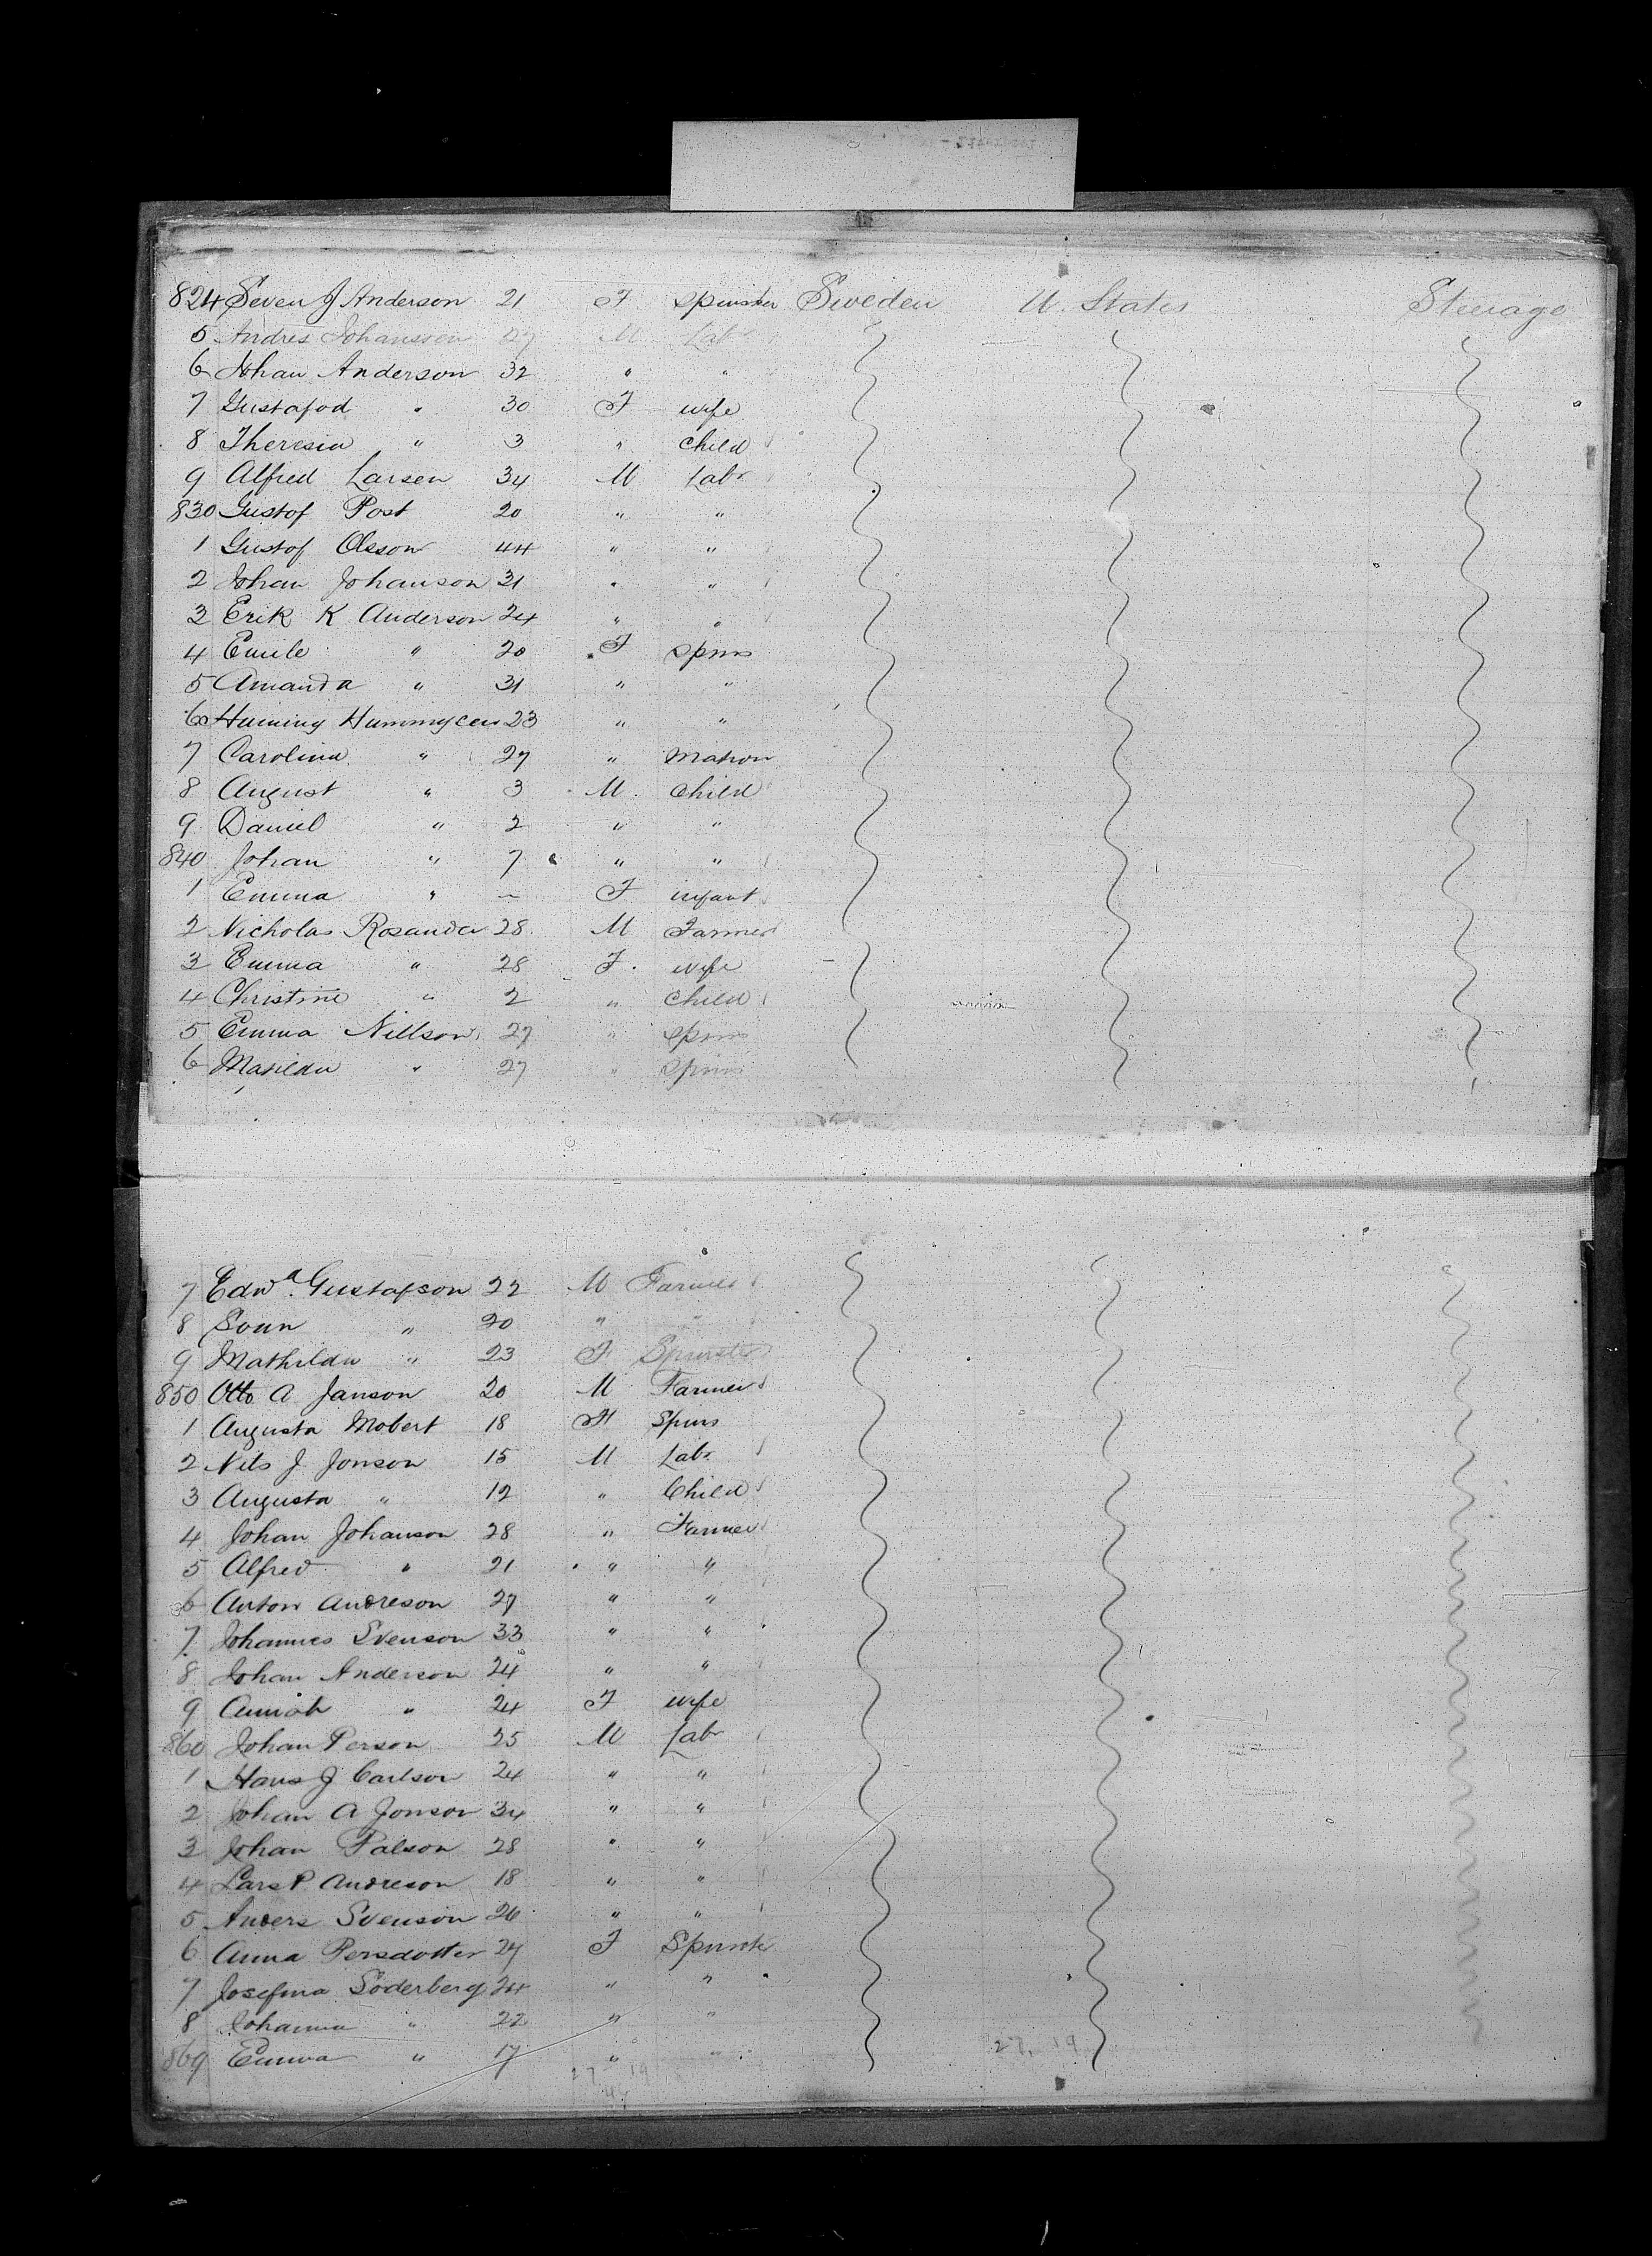 824 Seven J Anderson 21 F Spinster Sweden U. States Steerage
5 Andres Johanssen 27 M Labr
6 Johan Anderson 32 " "
7 Gustafod " 30 F wife
8 Theresia " 3 " child
9 Alfred Larsen 34 M Labr
830 Gustof Post 20 " "
1 Gustof Olsson 44 " "
2 Johan Johanson 31 " "
3 Erik K Anderson 24 " "
4 Emile " 20 F Spins
5 Amanda " 31 " "
6 23 " "
7 Carolina " 27 " Matron
8 August " 3 M. Child
9 Daniel " 2 " "
840 Johan " 7 " "
1 Emma " ~ F infant
2 Nicholas Rosander 28 M Farmer
3 Emma " 28 F. wife
4 Christine " 2 " Child
5 Emma Nillson 27 " Spins
6 Matilda " 27 " Spins
7 Edwd. Gustafson 22 M Farmer
8 Soun " 20 " "
9 Mathilda " 23 F Spinster
850 Otto A Janson 20 M Farmer
1 Augusta Mobert 18 F Spins
2 Nils J Jonson 15 M Labr
3 Augusta " 12 " Child
4 Johan Johanson 28 " Farmer
5 Alfred " 21 " "
6 Anton Andreson 27 " "
7 Johannes Svenson 33 " "
8 Johan Anderson 24 " "
9 " 24 F wife
860 Johan Person 25 M Labr
1 Hans J Carlson 24 " "
2 Johan A Jonson 34 " "
3 Johan Palson 28 " "
4 Lars P Andreson 18 " "
5 Anders Svenson 26 " "
6 Anna Persdotter 27 F Spinster
7 Josefina Soderberg 24 " "
8 Johanna " 22 " "
869 Emma " 17 " "
27. 19
27 19